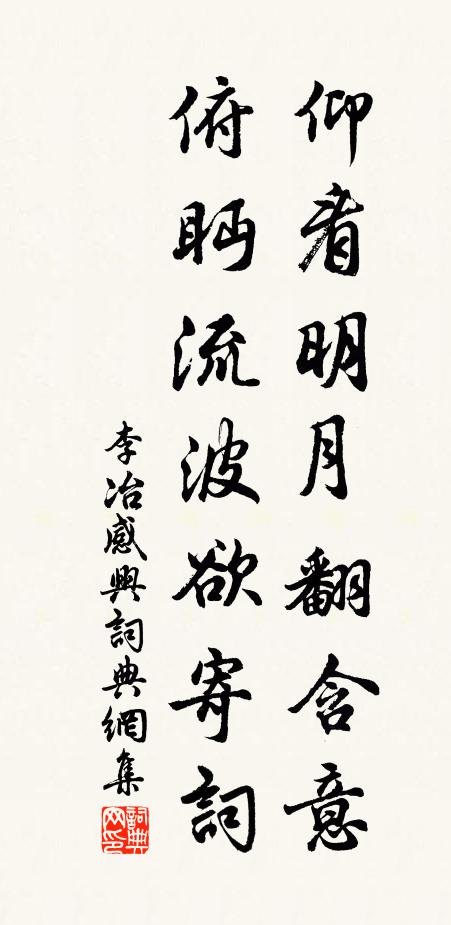 仰看明月翻含意
俯眄流波欲寄詞
李冶感興詞典網集
詞典
网印